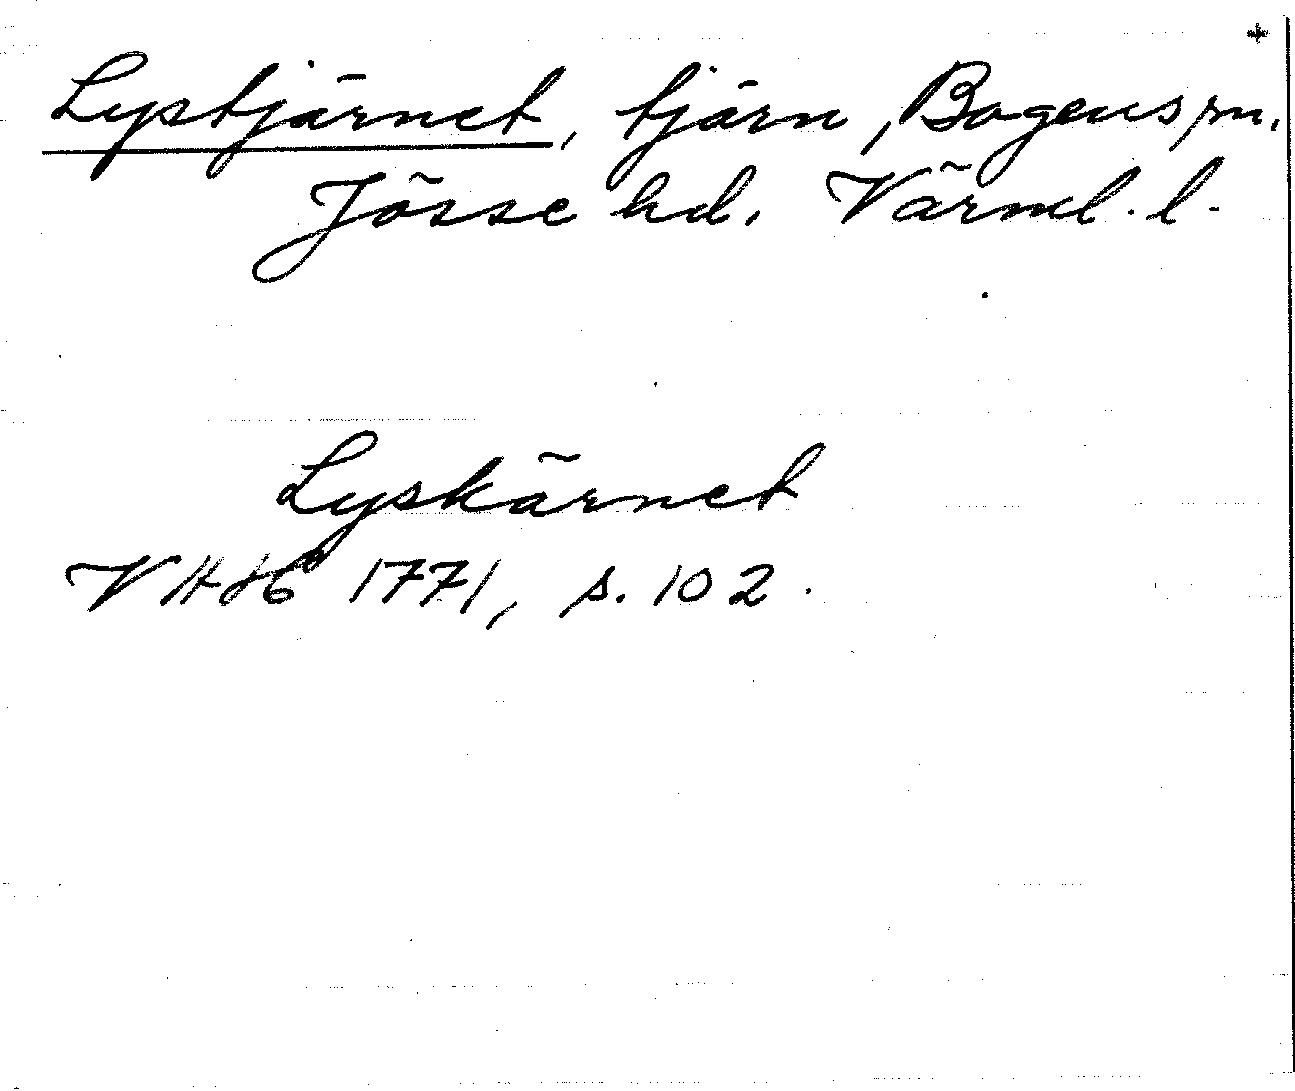 Lystjärnet, tjärn, Bogens sn.
Jösse hd. Värml. l.
Lyskärnet
1771, s. 102.